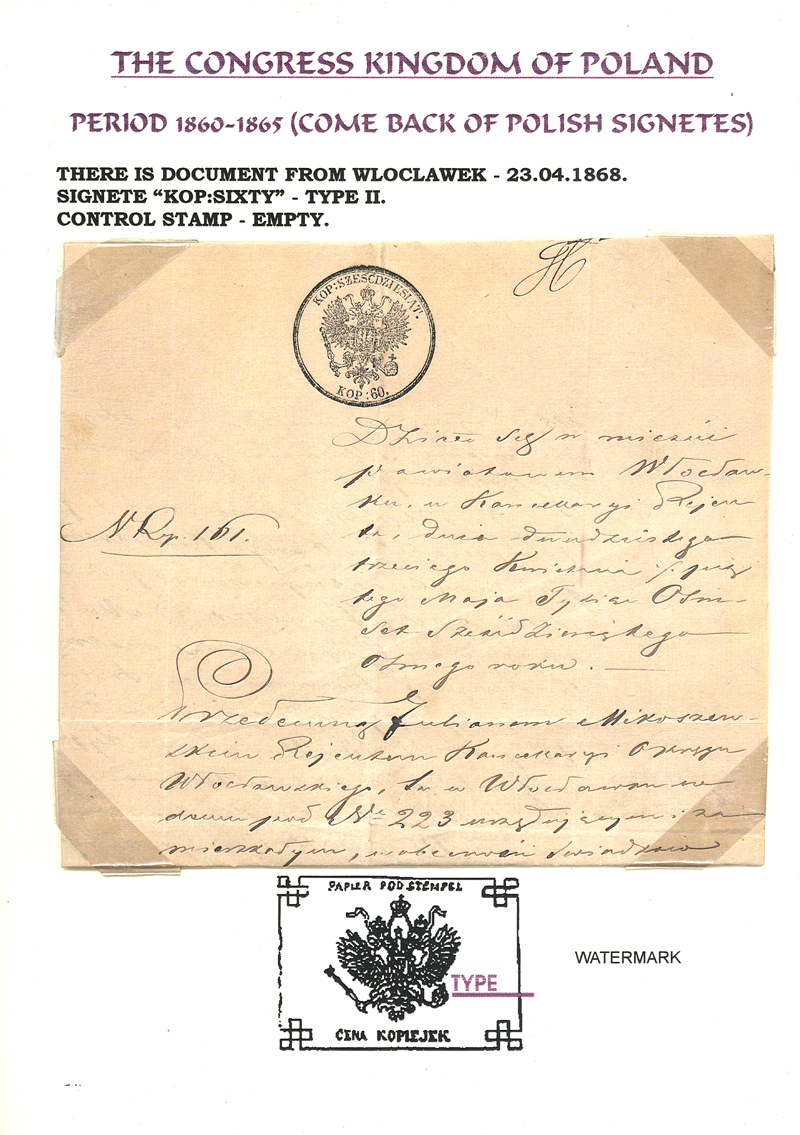 THE CONGRESS KINGDOM OF POLAND
PERIOD 1860-1865 (COME BACK OF POLISH SIGNETES)
THERE IS DOCUMENT FROM WLOCLAWEK - 23.04.1868.
SIGNETE “KOP:SIXTY” - TYPE II.
CONTROL STAMP - EMPTY.
KOP:SZEŚĆDZIESIĄT.
KOP:60.
Działo się w mieście
powiatowem Włocław-
ku, w Kancellaryi Rejen-
ta, dnia dwudziestego
N Rep. 161.
trzeciego Kwietnia /: pią
tego Maja Tysiąc Ośm-
set Sześćdziesiątego
ósmego roku.
Przedemną Julianem Mikoszew-
skim Rejentem Kancellaryi Okręgu
Włocławskiego, tu w Włocławku w
domu pod № 223 urzędującym i za
mieszkałym, w obecności świadków
PAPIER POD STEMPEL
TYPE
CENA KOPIEJEK
WATERMARK